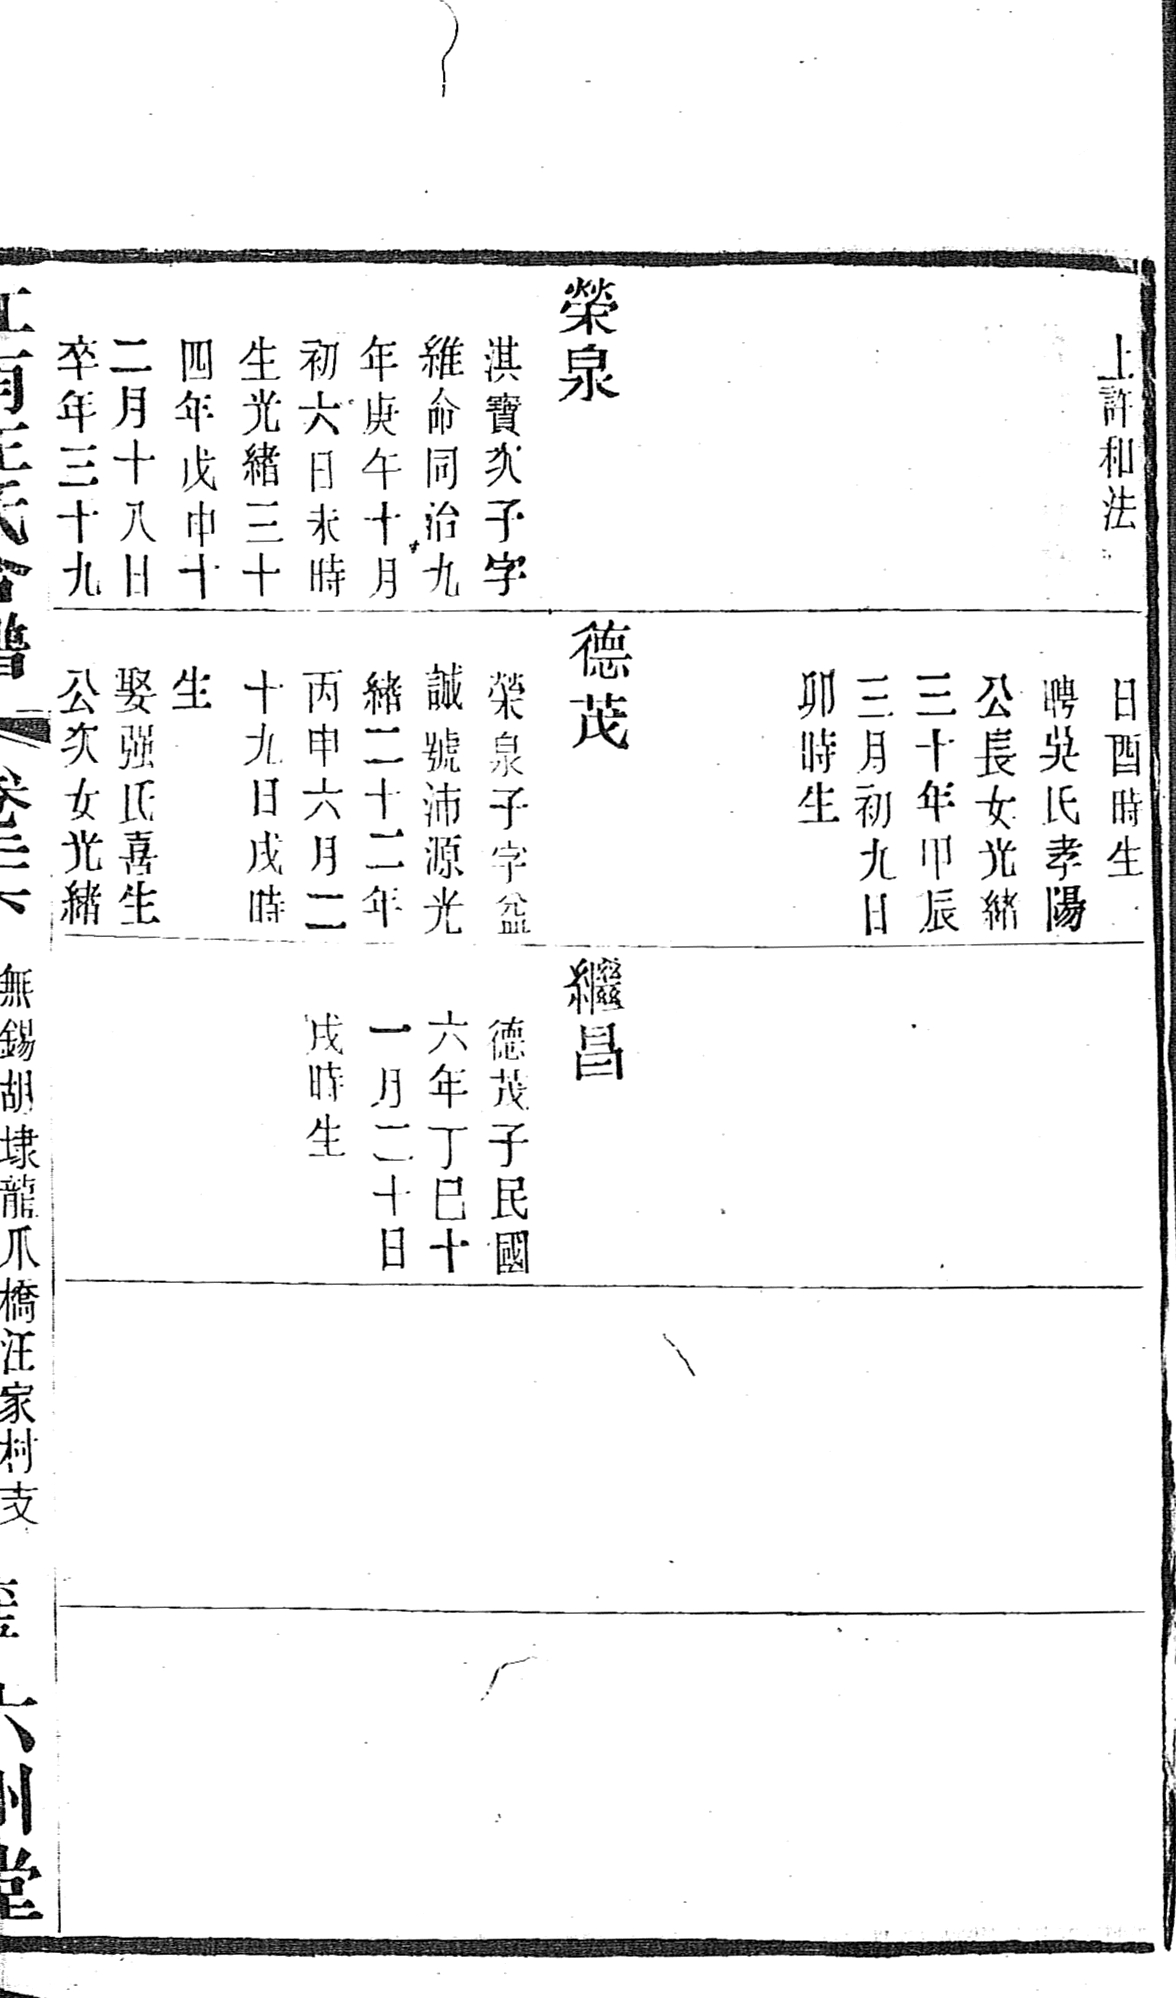 上許和法
榮泉
淇寶次子字
維命同治九
年庚午十月
初六日未時
生光緒三十
四年戊申十
二月十八日
卒年三十九
日酉時生
聘吳氏孝陽
公長女光緒
三十年甲辰
三月初九日
卯時生
德茂
榮泉子字益
誠號沛源光
緒二十二年
丙申六月二
十九日戌時
生
娶强氏喜生
公次女光緒
繼昌
德茂子民國
六年丁巳十
一月二十日
戌時生
無錫胡埭龍爪橋汪家村支
六州堂